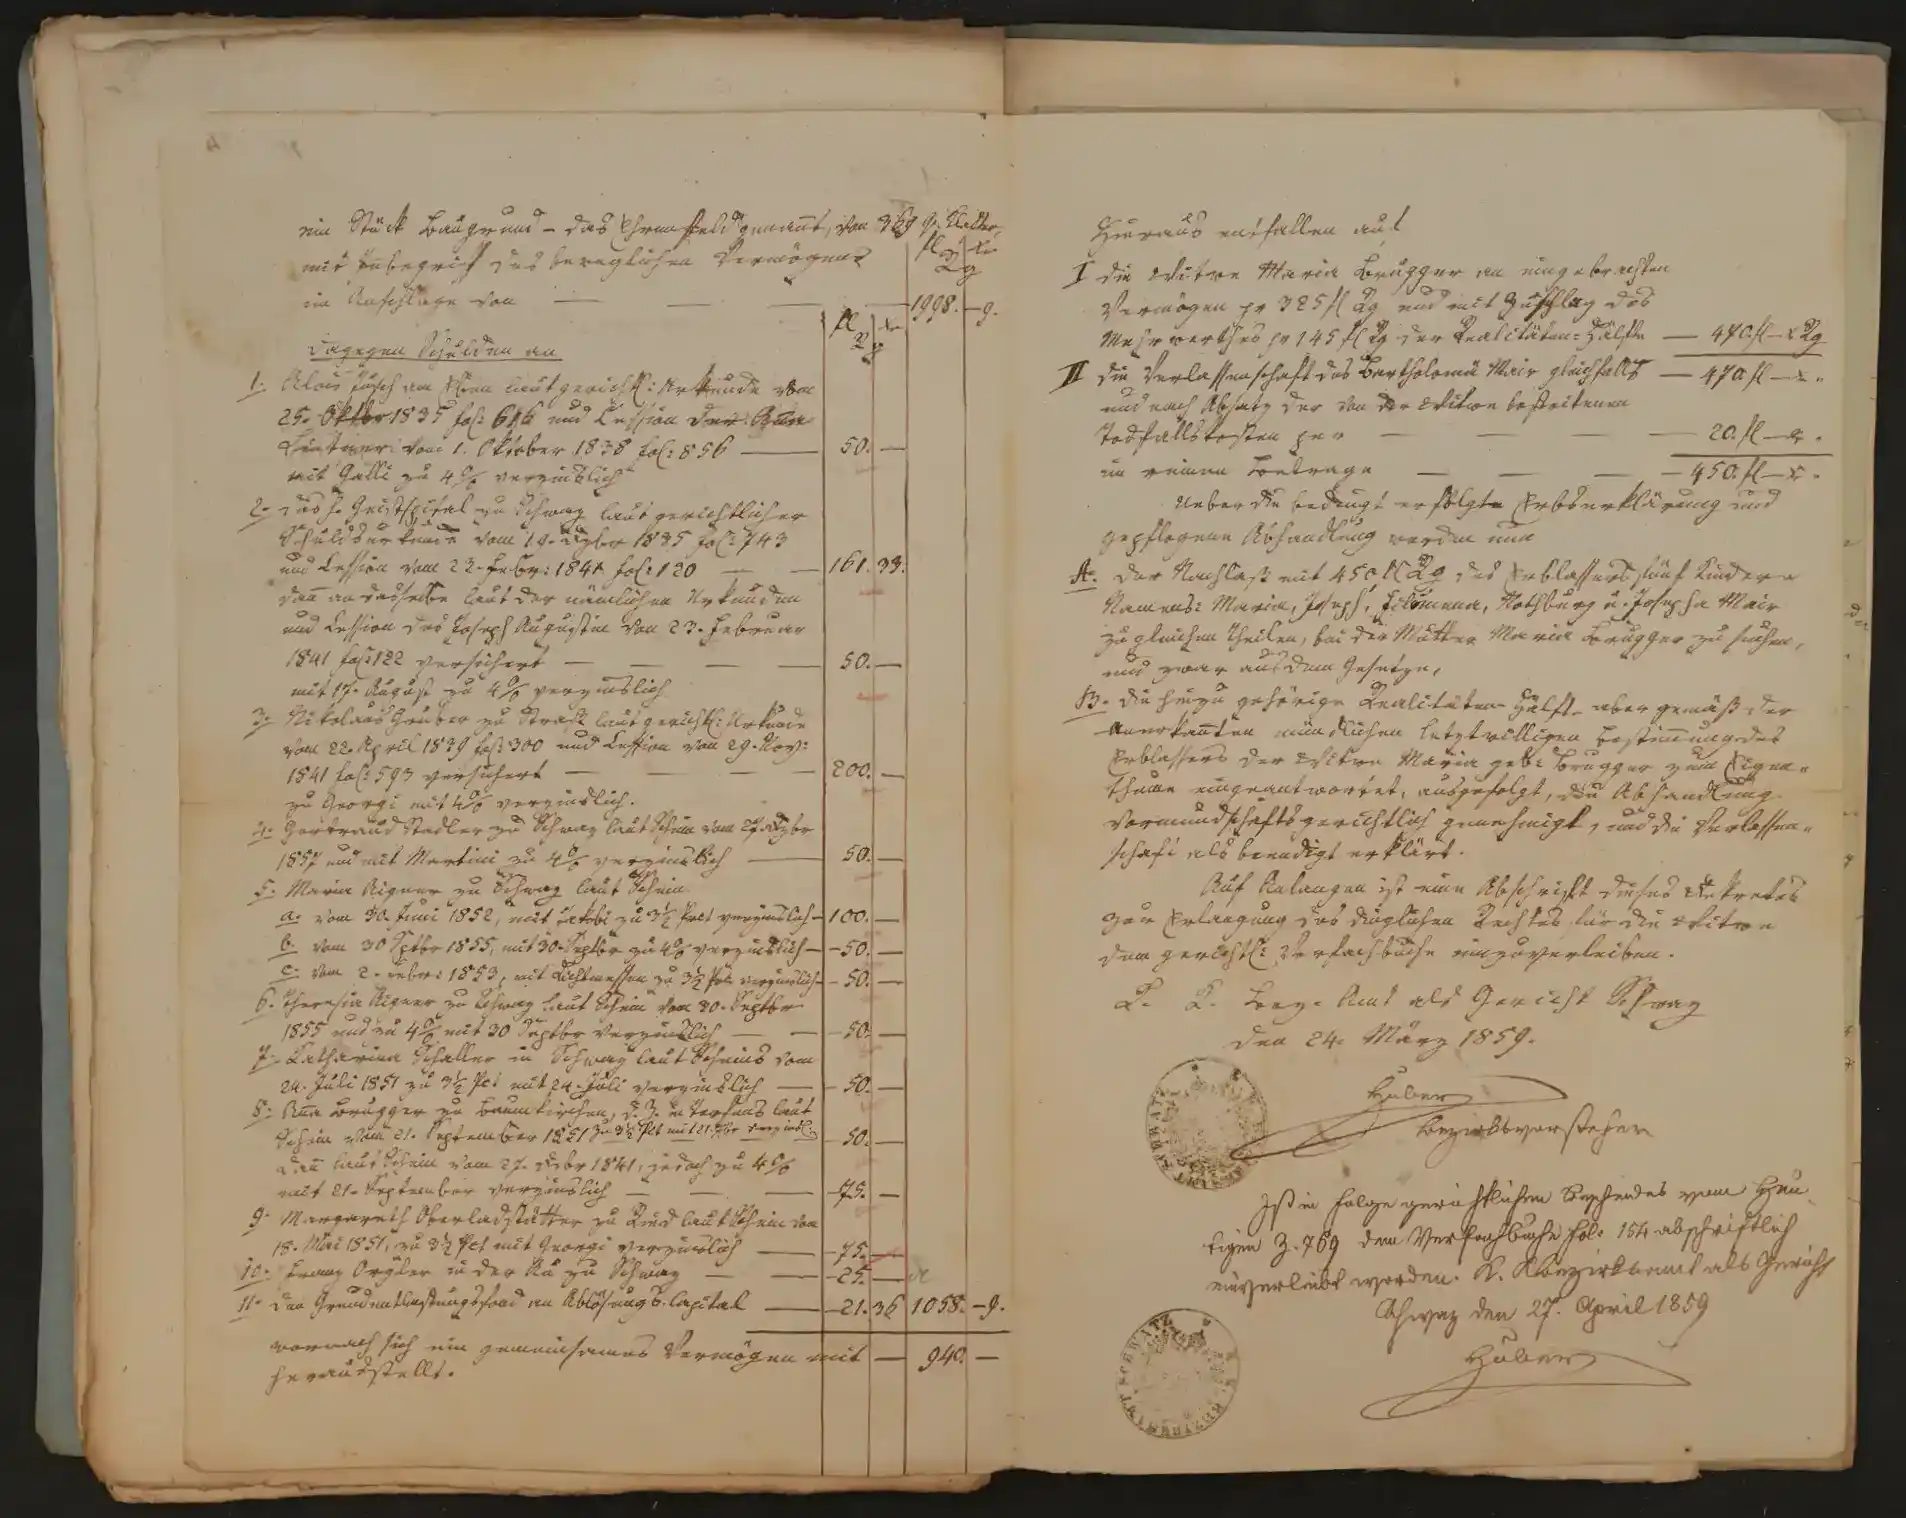 ein Stück Baugrund – das Ehrnfeld genannt, von 369 Qu. Klafter
mit Inbegrif des beweglichen Vermögens
im Anschlage von — — — 1998. – 9.
fl xr
RW
fl xr
RW
Dagegen Schulden an
1. Alois Jusch am Stein laut gerichtl: Urkunde vom
25. Oktbr 1835 fol: 616 und Cession der
vom 1. Oktober 1838 fol: 856 — 50. —
mit Galli zu 4% verzinslich
2. das h. Geistspital zu Schwaz laut gerichtlicher
Schuldurkunde vom 19. Dzbr 1835 fol: 743
und Cession vom 23. Febr: 1841 fol: 120 — — 161. 33.
dann an dasselbe laut der nämlichen Urkunden
und Cession des Joseph Augustin von 23. Februar
1841 fol: 122 versichert — — — 50. —
mit 17. August zu 4% verzinslich
3. Nikolaus Gruber zu Straß laut gerichtl: Urkunde
vom 22. April 1839 fol: 300 und Cession von 29. Nov:
1841 fol: 593 versichert — — — 200. —
zu Georgi mit 4% verzinslich.
4. Gertraud Stadler zu Schwaz laut Schein vom 27. Dzbr
1857 und mit Martini zu 4% verzinslich — 50. —
5. Maria Aigner zu Schwaz laut Schein
a. vom 30. Juni 1852, mit Jakobi zu 3½ Pct verzinslich – 100. —
b. vom 30 Sptbr 1855, mit 30. Septbr zu 4% verzinslich – 50. —
c. vom 2. Febr: 1853, mit Lichtmessen zu 3½ Pct verzinslich – 50. —
6. Theresia Aigner zu Schwaz laut Schein vom 30. Septbr
1855 und zu 4% mit 30 Septbr verzinslich — — 50. —
7. Katharina Schaller in Schwaz laut Scheins vom
24. Juli 1851 zu 3½ Pct mit 24. Juli verzinslich — 50. —
8. Anna Brugger zu Baumkirchen, d. Z. in Terfens laut
Schein vom 21. September 1851 zu 3½ Pct mit 21. 7br verzinsl. – 50. —
dann laut Schein vom 27. Dzbr 1841, jedoch zu 4%
mit 21. September verzinslich — — — 75. —
9. Margareth Oberladstätter zu Ried laut Schein von
18. Mai 1851, zu 3½ Pct mit Georgi verzinslich — 75. —
10. Franz Orgler in der Au zu Schwaz — — 25. —
11. den Grundentlastungsfond an Ablösungs-Capital — 21. 36 1058. – 9.
wornach sich ein gemeinsames Vermögen mit — 940. —
herausstellt.
Hieraus entfallen auf
I die Witwe Maria Brugger an eingebrachten
Vermögen pr 325 fl RW und mit Zuschlag des
Mehrwerthes pr 145 fl RW der Realitäten-Hälfte — 470. fl – xr RW
II die Verlassenschaft des Bartholomä Mair gleichfalls — 470 fl – xr.
und nach Absatz der von der Witwe bestrittenen
Todfallskosten per — — — 20. fl – xr.
im reinen Betrage — — — 450. fl – xr.
Ueber die bedingt erfolgte Erbserklärung und
gepflogene Abhandlung werden nun
A. der Nachlaß mit 450 fl RW des Erblassers fünf Kindern
Namens: Maria, Joseph, Filomena, Nothburg u. Josepha Mair
zu gleichen Theilen, bei der Mutter Maria Brugger zu suchen,
und zwar aus dem Gesetze,
B. die hiezu gehörige Realitäten-Hälfte aber gemäß der
anerkannten mündlichen letztwilligen Bestimmung des
Erblassers der Witwe Maria geb: Brugger zum Eigen-
thume eingeantwortet, ausgefolgt, die Abhandlung
vormundschaftsgerichtlich genehmigt, und die Verlassen-
schaft als beendigt erklärt.
Auf Anlangen ist eine Abschrift dieses Dekretes
zur Erlangung des dinglichen Rechtes für die Witwe
dem gerichtl: Verfachbuche einzuverleiben.
K. K. Bez. Amt als Gericht Schwaz
den 24. März 1859.
Huber
Bezirksvorsteher
Ist in Folge gerichtlichen Bescheides vom Heu-
tigen Z. 769 dem Verfachbuche fol. 154 abschriftlich
einverleibt worden. K. K. Bezirksamt als Gericht
Schwaz den 27. April 1859
Huber